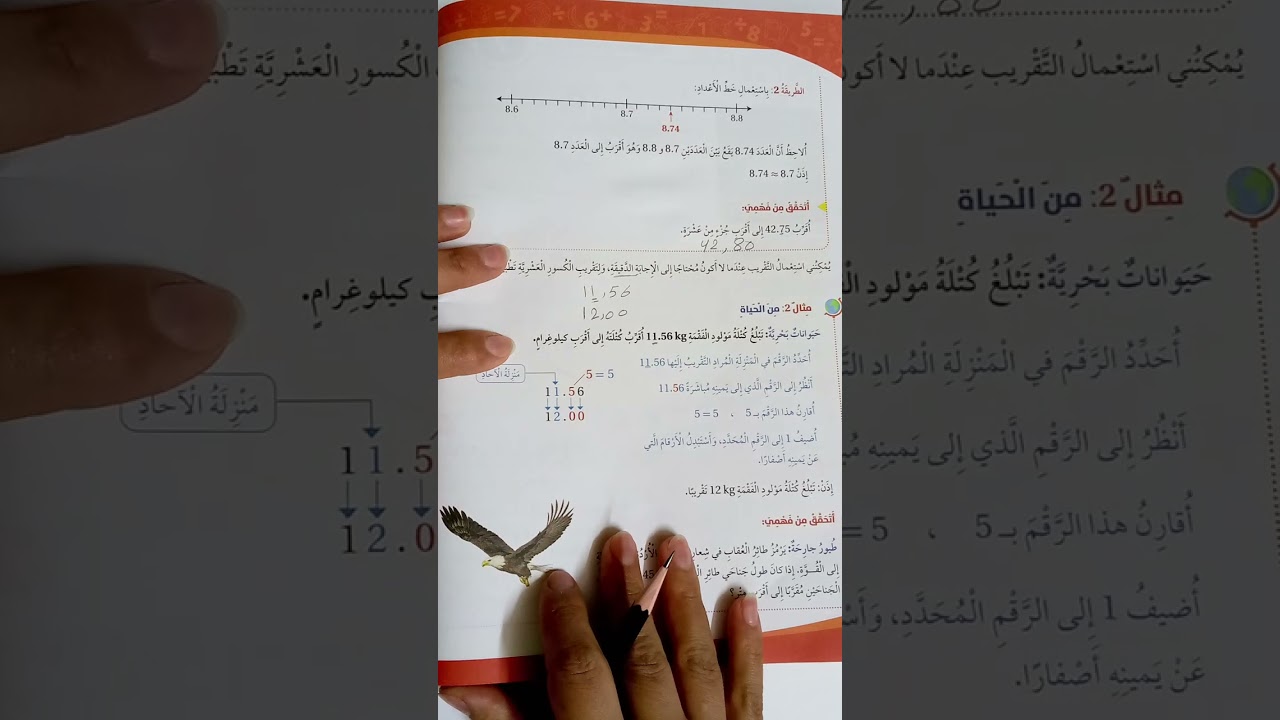 الطَّريقَةُ 2: بِاسْتِعْمالِ خَطِّ الْأَعْدادِ:
8.6 8.7 8.8
8.74
أُلاحِظُ أَنَّ الْعَدَدَ 8.74 يَقَعُ بَيْنَ الْعَدَدَيْنِ 8.7 و 8.8 وَهُوَ أَقْرَبُ إِلى الْعَدَدِ 8.7
إِذَنْ 8.7 ≈ 8.74
أَتَحَقَّقُ مِنْ فَهْمِيَ:
أُقَرِّبُ 42.75 إِلى أَقْرَبِ جُزْءٍ مِنْ عَشَرَةٍ.
42,80
يُمْكِنُني اسْتِعْمالُ التَّقْريبِ عِنْدَما لا أَكونُ مُحْتاجًا إِلى الْإِجابَةِ الدَّقيقَةِ، وَلِتَقْريبِ الْكُسورِ الْعَشْرِيَّةِ
11,56
12,00
مِثالٌ 2: مِنَ الْحَياةِ
حَيَواناتٌ بَحْرِيَّةٌ: تَبْلُغُ كُتْلَةُ مَوْلودِ الْفَقْمَةِ 11.56 kg أُقَرِّبُ كُتْلَتَهُ إِلى أَقْرَبِ كيلوغِرامٍ.
أُحَدِّدُ الرَّقْمَ في الْمَنْزِلَةِ الْمُرادِ التَّقْريبُ إِلَيْها 11.56
أَنْظُرُ إِلى الرَّقْمِ الَّذي إِلى يَمينِهِ مُباشَرَةً 11.56
أُقارِنُ هذا الرَّقْمَ بـ 5 ، 5 = 5
أُضيفُ 1 إِلى الرَّقْمِ الْمُحَدَّدِ، وَأَسْتَبْدِلُ الْأَرْقامَ الَّتي
عَنْ يَمينِهِ أَصْفارًا.
مَنْزِلَةُ الْآحادِ
5 = 5
11.56
12.00
إِذَنْ: تَبْلُغُ كُتْلَةُ مَوْلودِ الْفَقْمَةِ 12 kg تَقْريبًا.
أَتَحَقَّقُ مِنْ فَهْمِيَ:
طُيورٌ جارِحَةٌ: يَرْمُزُ طائِرُ الْعُقابِ في شِعارِ
إِلى الْقُوَّةِ، إِذا كانَ طولُ جَناحَيْ طائِرِ
الْجَناحَيْنِ مُقَرَّبًا إِلى أَقْرَبِ